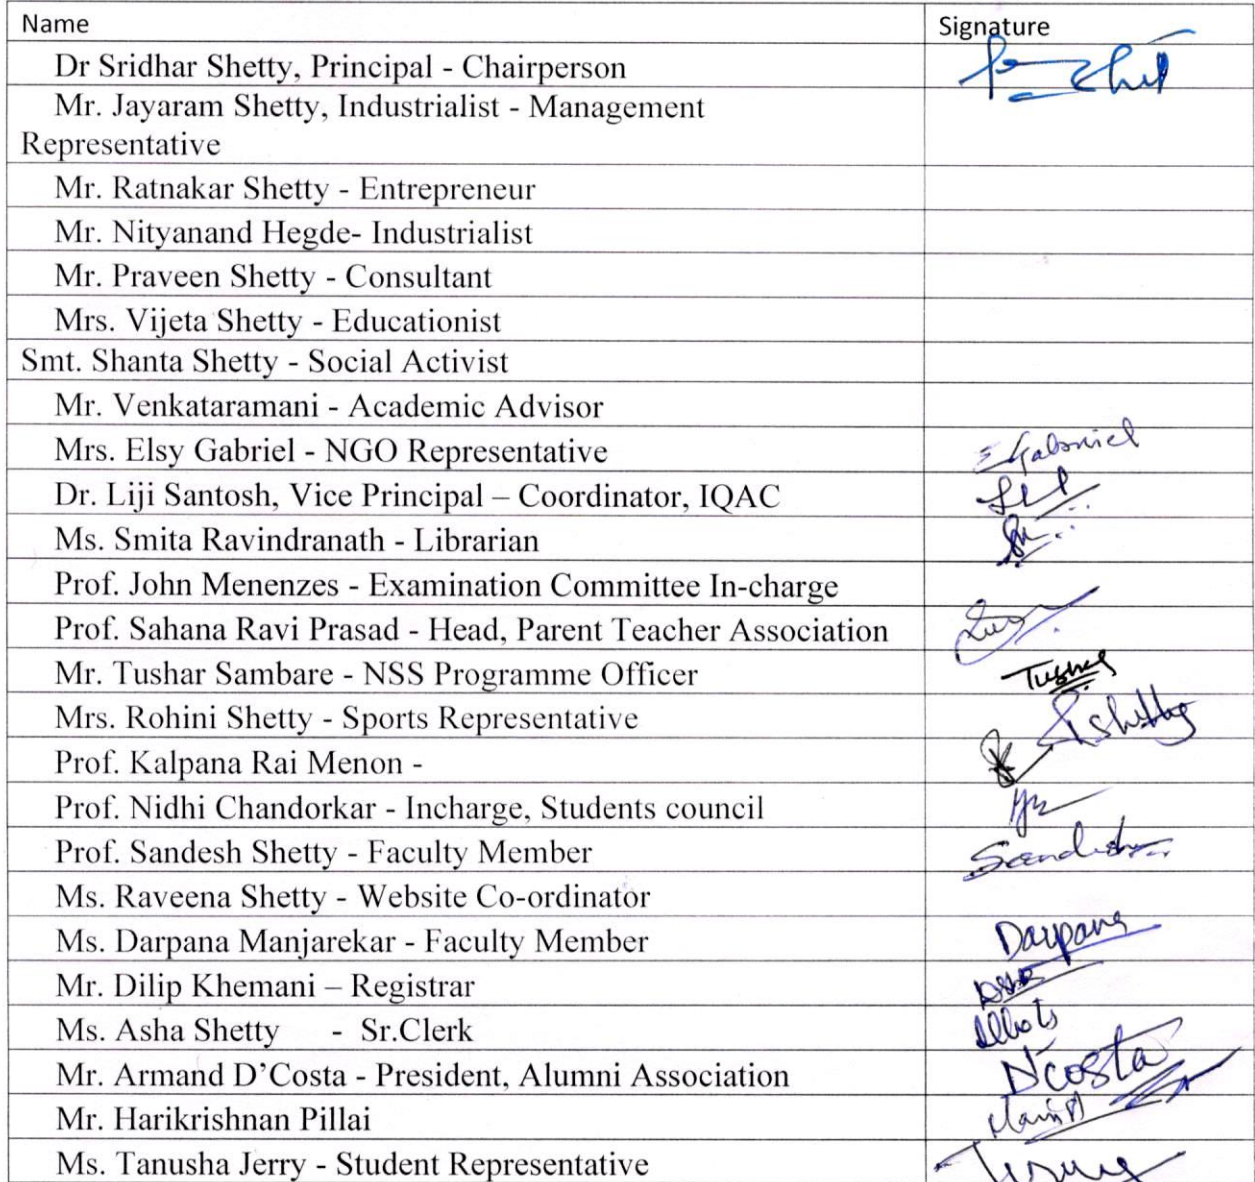 Name Signature
Dr Sridhar Shetty, Principal - Chairperson
Mr. Jayaram Shetty, Industrialist - Management
Representative
Mr. Ratnakar Shetty - Entrepreneur
Mr. Nityanand Hegde- Industrialist
Mr. Praveen Shetty - Consultant
Mrs. Vijeta Shetty - Educationist
Smt. Shanta Shetty - Social Activist
Mr. Venkataramani - Academic Advisor
Mrs. Elsy Gabriel - NGO Representative EGabriel
Dr. Liji Santosh, Vice Principal – Coordinator, IQAC
Ms. Smita Ravindranath - Librarian
Prof. John Menenzes - Examination Committee In-charge
Prof. Sahana Ravi Prasad - Head, Parent Teacher Association
Mr. Tushar Sambare - NSS Programme Officer Tushar
Mrs. Rohini Shetty - Sports Representative RShetty
Prof. Kalpana Rai Menon -
Prof. Nidhi Chandorkar - Incharge, Students council
Prof. Sandesh Shetty - Faculty Member Sandesh
Ms. Raveena Shetty - Website Co-ordinator
Ms. Darpana Manjarekar - Faculty Member Darpana
Mr. Dilip Khemani – Registrar
Ms. Asha Shetty - Sr.Clerk
Mr. Armand D’Costa - President, Alumni Association D'costa
Mr. Harikrishnan Pillai
Ms. Tanusha Jerry - Student Representative